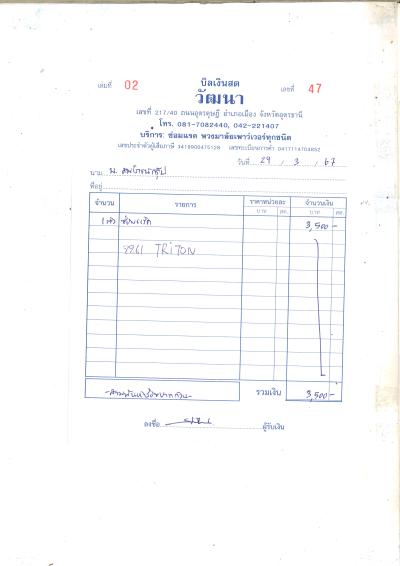 บิลเงินสด
เล่มที่ 02 เลขที่ 47
วัฒนา
เลขที่ 217/40 ถนนอุดรดุษฎี อำเภอเมือง จังหวัดอุดรธานี
โทร. 081-7082440, 042-221407
บริการ: ซ่อมแรค พวงมาลัยเพาเวอร์ทุกชนิด
เลขประจำตัวผู้เสียภาษี 3419900475128 เลขทะเบียนการค้า 0417114704852
วันที่ 29 / 3 / 67
นาม
ที่อยู่
จำนวน รายการ ราคาหน่วยละ จำนวนเงิน
บาท สต. บาท สต.
1 ตัว ซ่อมแร็ค 3,500 -
9961 TRITON
-สามพันห้าร้อยบาทถ้วน- รวมเงิน 3,500 -
ลงชื่อ ผู้รับเงิน